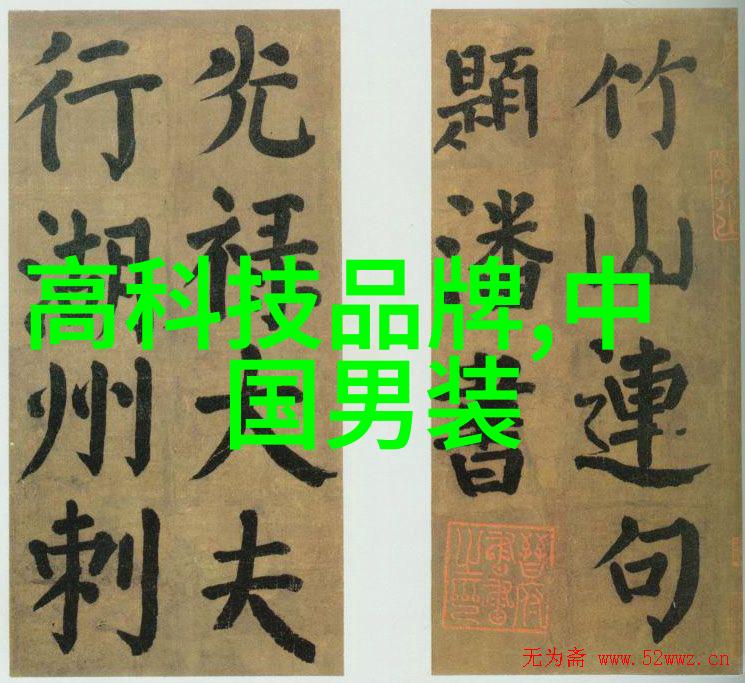 高科技品牌,中
国男装
竹山連句
題潘書
光祿大夫
行湖州刺
无为斋 www.52wwz.cn